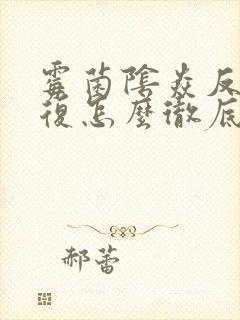 霉菌陰炎反
復怎麼徹底
郝蕾